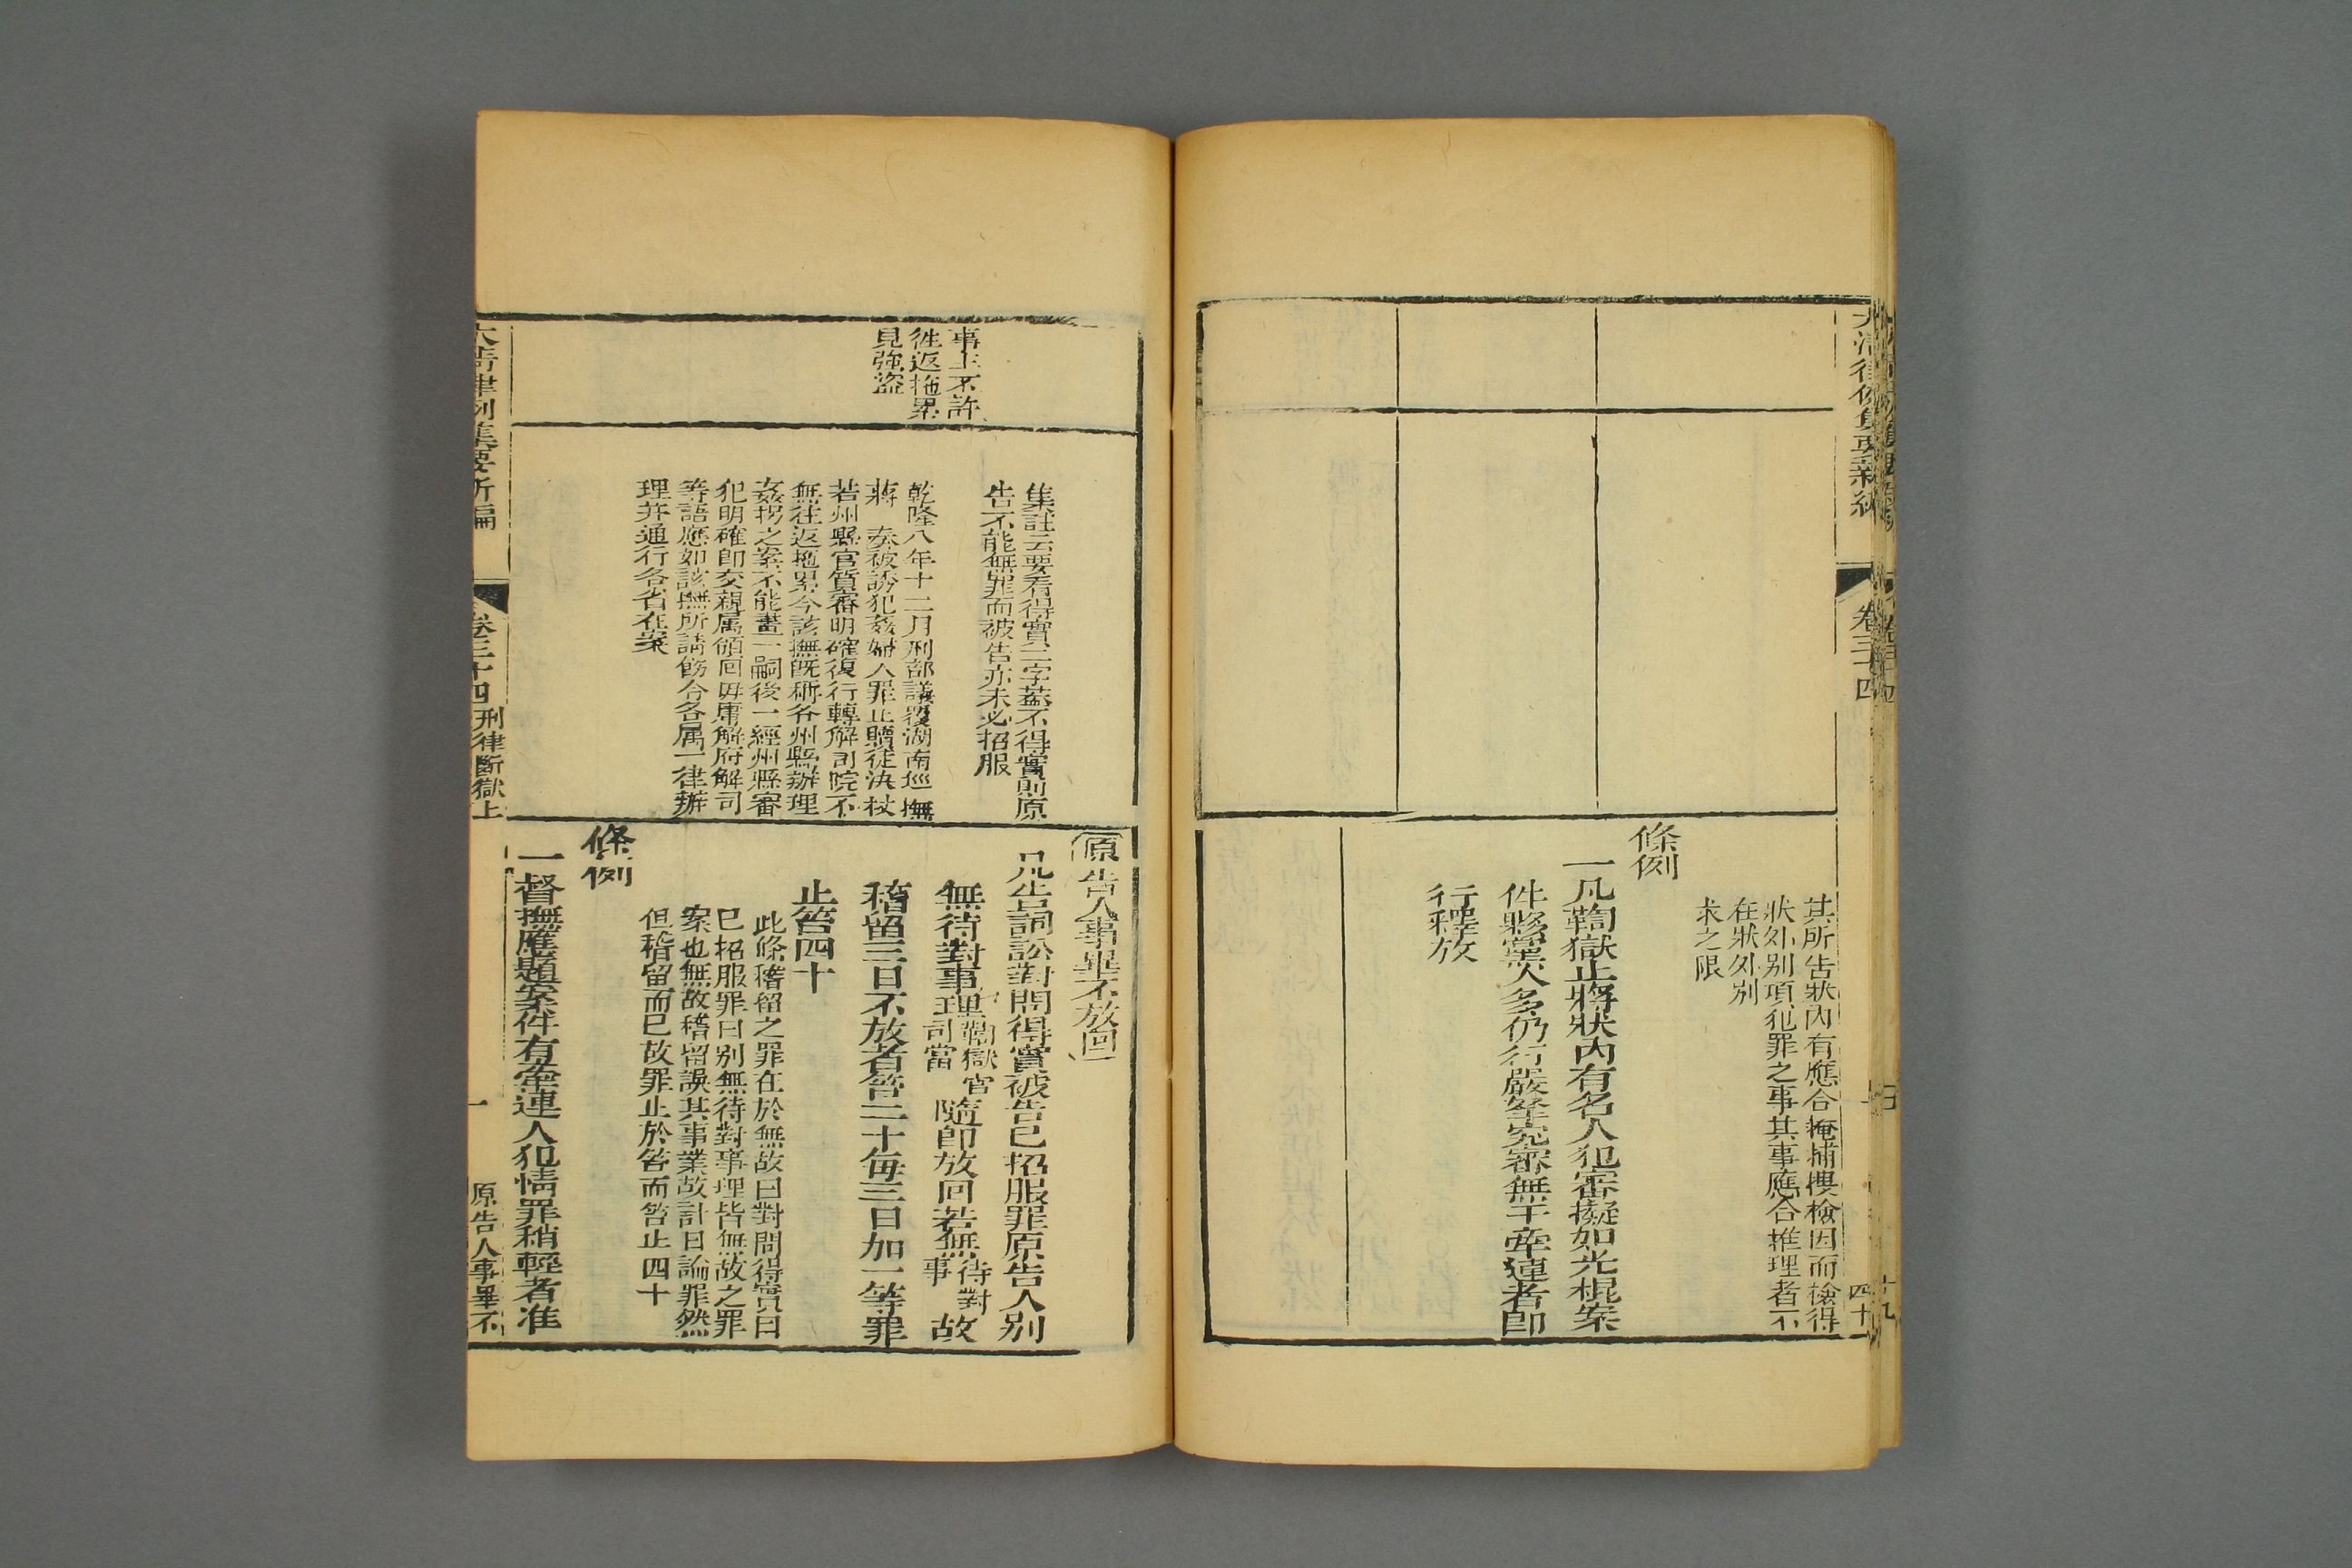 卷三十四
四十
其所告狀內有應合掩捕搜檢因而檢得
狀外別項犯罪之事其事應合推理者不
在狀外別
求之限
條例
一凡鞫獄止將狀內有名人犯審擬如光棍案
件夥黨人多仍行嚴拏究審無干牽連者卽
行釋放
事主不許
徃返拖累
見強盜
集註云要看得實二字蓋不得實則原
告不能無罪而被告亦未必招服
乾隆八年十二月刑部議覆湖南巡撫
蔣 奏被誘犯姦婦人罪止贖徒決杖
若州縣官質審明確復行轉解司院不
無往返拖累今該撫旣稱各州縣辦理
姦拐之案不能畫一嗣後一經州縣審
犯明確卽交親属領回毋庸解府解司
等語應如該撫所請飭令各属一律辦
理并通行各省在案
原告人事畢不放回
凡告詞訟對問得實被告已招服罪原告人別
無待對事理鞫獄官司當隨卽放回若無待對事故
稽留三日不放者笞二十每三日加一等罪
止笞四十
此條稽留之罪在於無故曰對問得實曰
已招服罪曰別無待對事理皆無故之罪
案也無故稽留誤其事業故計日論罪然
但稽留而已故罪止於笞而笞止四十
條例
一督撫應題案件有牽連人犯情罪稍輕者准
大淸律例集要新編
卷三十四
刑律斷獄上
一
原告人事畢不